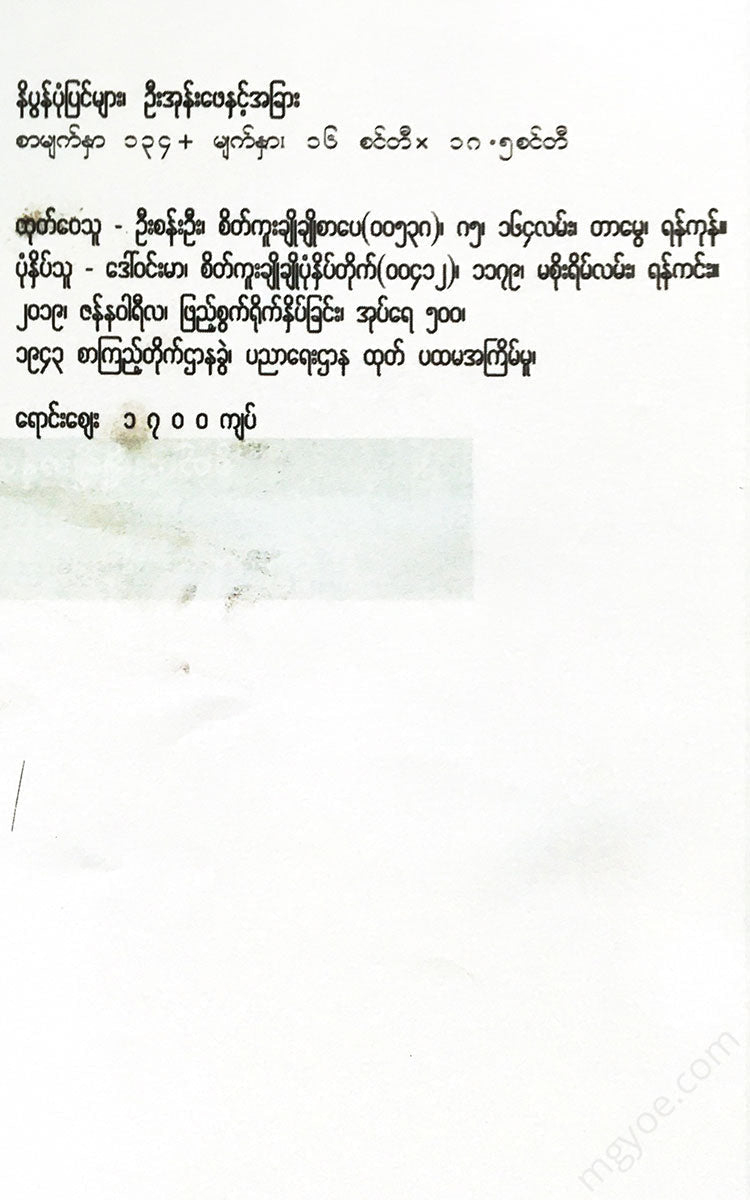 နိပွန်ပုံပြင်များ၊ ဦးအုန်းဖေနှင့်အခြား
စာမျက်နှာ ၁၃၄+ မျက်နှာ၊ ၁၆ စင်တီ× ၁ဂ.၅စင်တီ
ထုတ်ဝေသူ - ဦးစန်းဦး၊ စိတ်ကူးချိုချိုစာပေ(၀၀၅၃ဂ)၊ ဂ၅၊ ၁၆၄လမ်း၊ တာမွေ၊ ရန်ကုန်။
ပုံနှိပ်သူ - ဒေါ်ဝင်းမာ၊ စိတ်ကူးချိုချိုပုံနှိပ်တိုက်(၀၀၄၁၂)၊ ၁၁၇၉၊ မစိုးရိမ်လမ်း၊ ရန်ကင်း။
၂၀၁၉၊ ဇန်နဝါရီလ၊ ဖြည့်စွက်ရိုက်နှိပ်ခြင်း၊ အုပ်ရေ ၅၀၀၊
၁၉၄၃ စာကြည့်တိုက်ဌာနခွဲ၊ ပညာရေးဌာန ထုတ် ပထမအကြိမ်မူ၊
ရောင်းဈေး ၁ ၇ ၀ ၀ ကျပ်
mgyoe.com